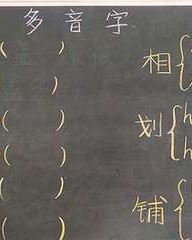 多音字
( ) 相{
( )
( ) 划{h
( ) h
( )
( ) 铺{